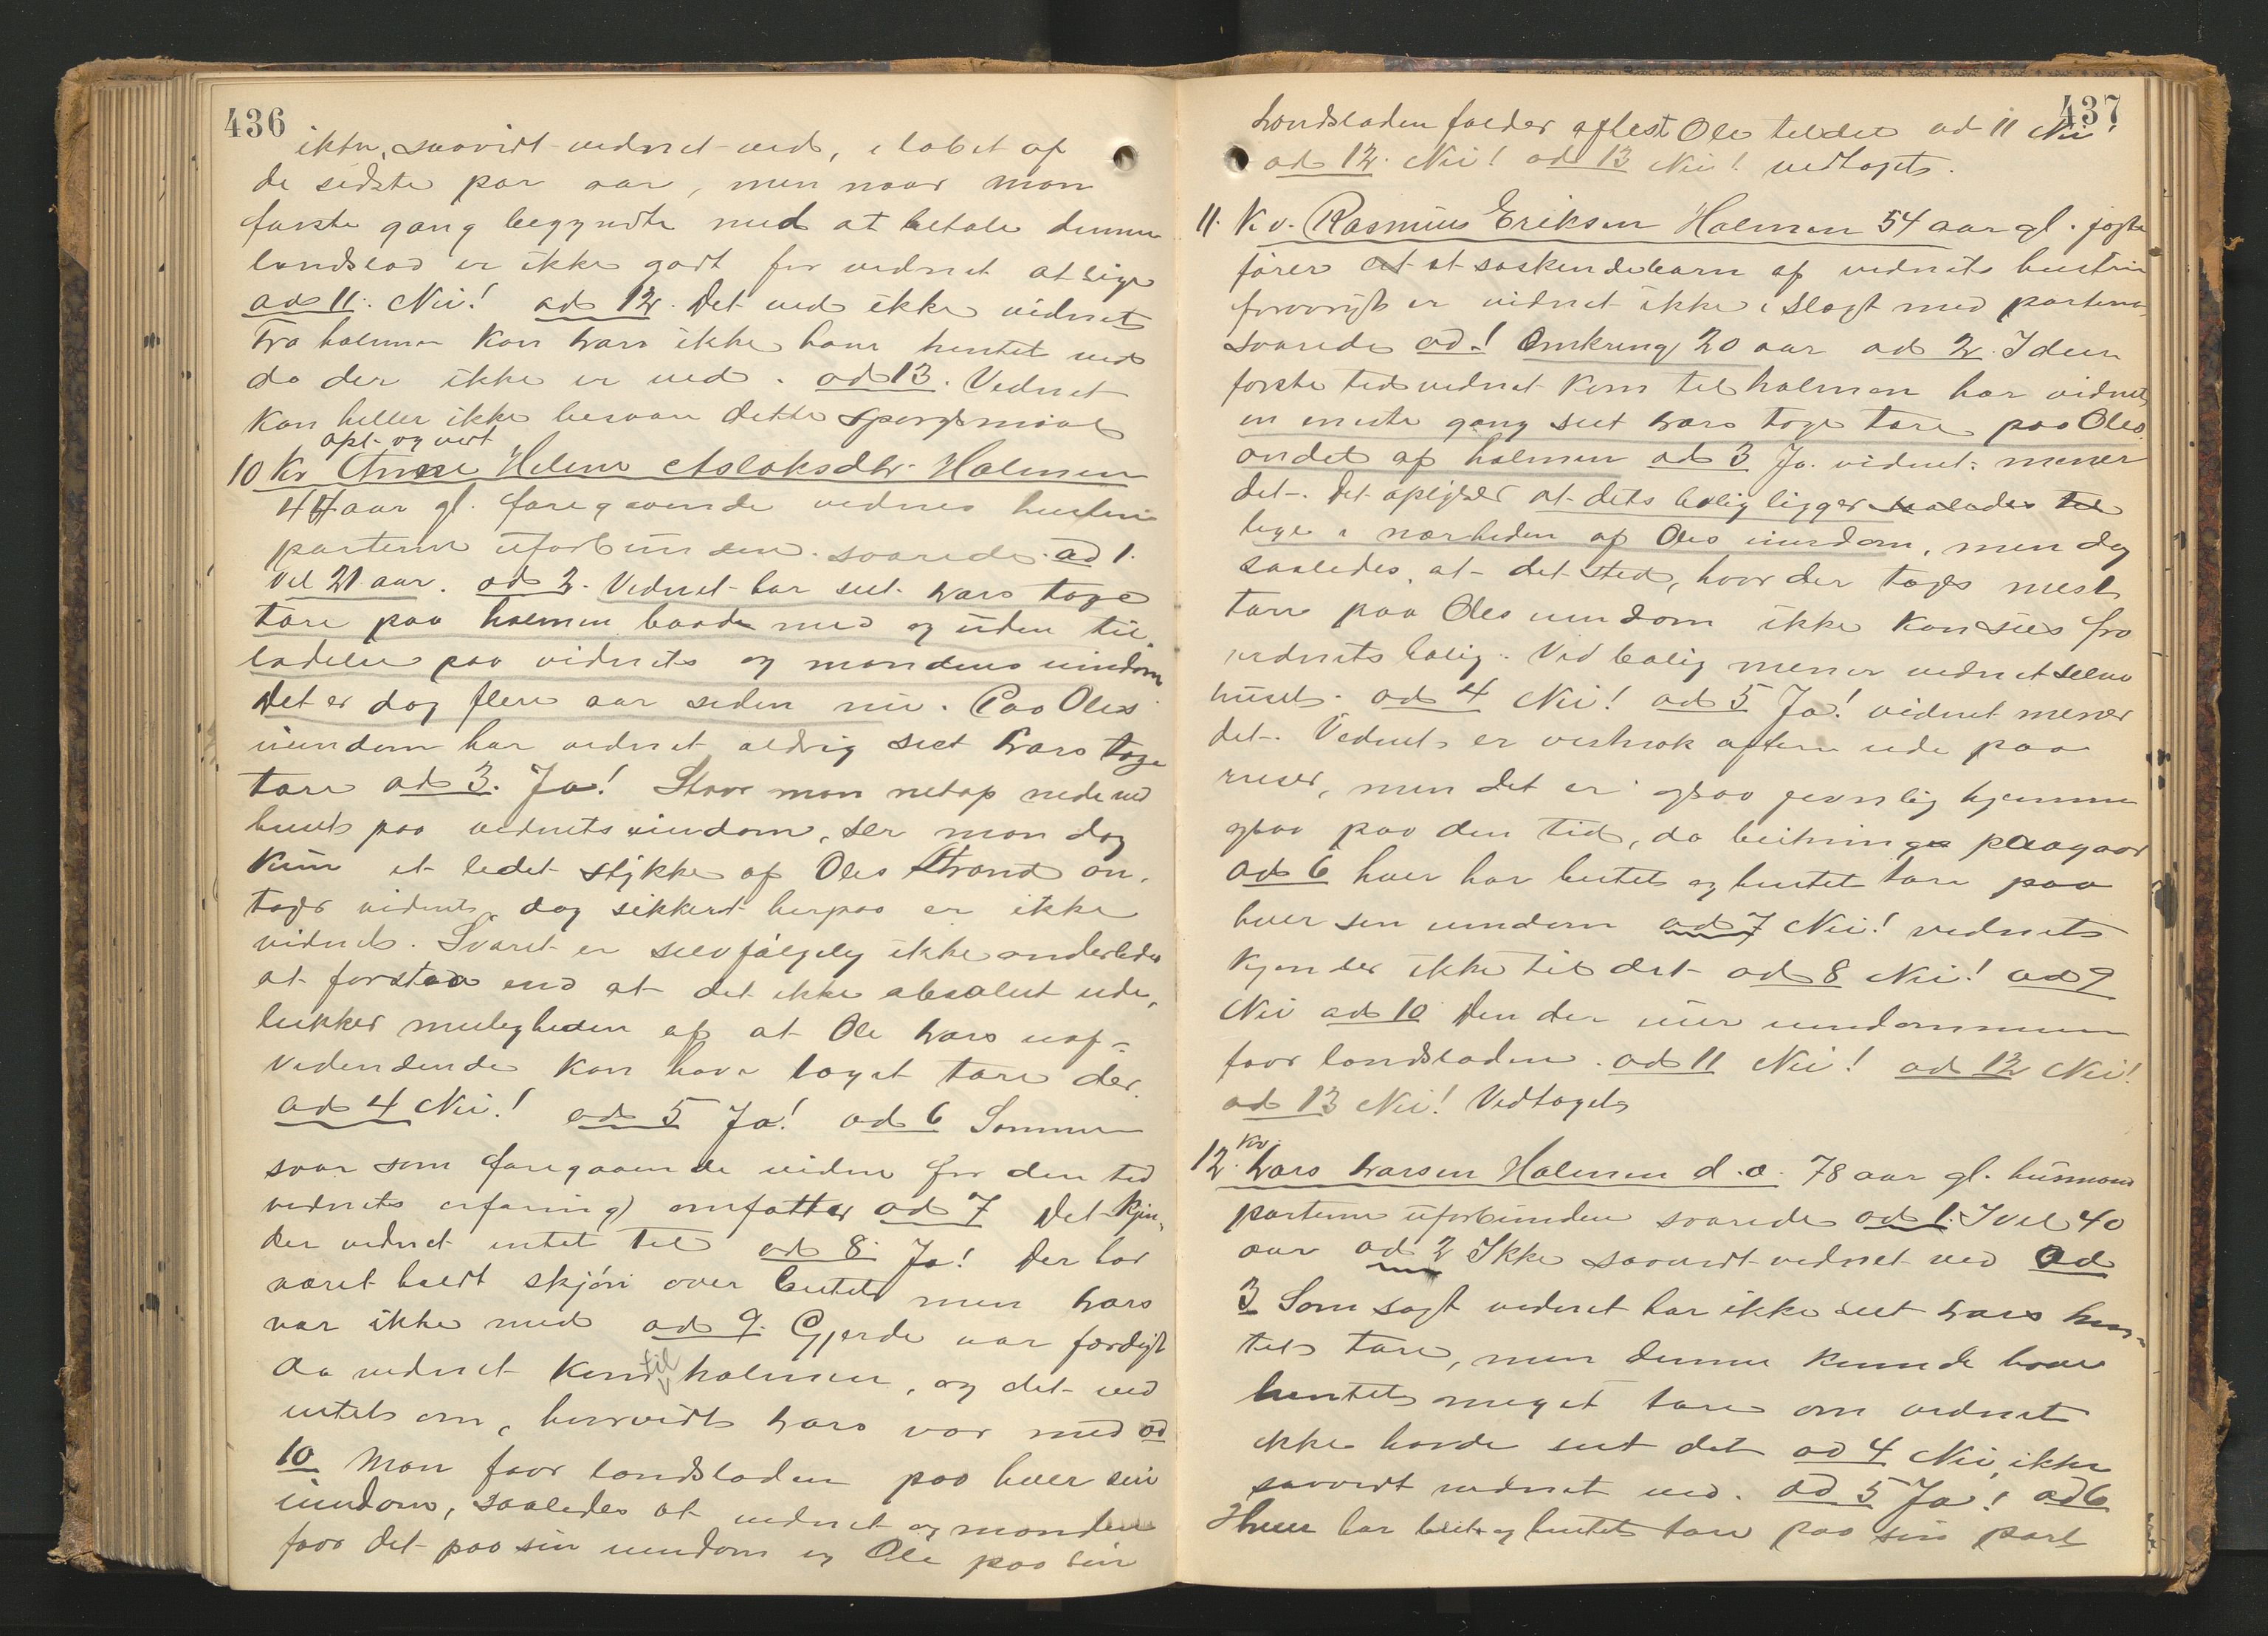 436
ikke, saavidt vidnet ved, i løbet af
de sidste par aar, men naar man
første gang begyndte med at betale denne
landslod er ikke godt for vidnet at sige
ad 11. Nei! ad 12. Det ved ikke vidnet
Fra holmen kan Lars ikke have hentet ved
da der ikke er ved. ad 13. Vidnet
kan heller ikke besvare dette spørgsmaal
opl. og vedt
10 Kv Anne Helene Aslaksdtr. Holmen
44 aar gl. foregaaende vidnes hustru
parterne uforbunden. svarede ad 1.
Vel 21 aar. ad 2. Vidnet har seet Lars tage
tare paa holmen baade med og uden til-
ladelse paa vidnets og mandens eindom
Det er dog flere aar siden nu. Paa Oles
eiendom har vidnet aldrig seet Lars tage
tare ad 3. Ja! Staar man netop nede ved
huset paa vidnets eindom, ser man dog
kun et lidet stykke af Oles strand an-
tager vidnet, dog sikkert herpaa er ikke
vidnet. Svaret er selvfølgelig ikke anderledes
at forstaa end at det ikke absolut ude-
lukker muligheden af at Ole Lars uaf-
vidende kan have taget tare der.
ad 4 Nei! ad 5 Ja! ad 6 Samme
svar som foregaaende vidne for den tid
vidnets erfaring omfatter ad 7 Det kjen-
der vidnet intet til ad 8. Ja! Der har
været holdt skjøn over beitet men Lars
var ikke med ad 9. Gjerde var færdigt
da vidnet kom til holmen, og det ved
intet om, hvorvidt Lars var med ad
10 Man faar landsloden paa hver sin
eindom, saaledes at vidnet og manden
faar det paa sin eindom og Ole paa sin
437
Landsloden falder oftest Ole tildel ad 11 Nei!
ad 12. Nei! ad 13 Nei! vedtaget.
11. Kv. Rasmus Eriksen Holmen 54 aar gl. jagte
fører et at søskendebarn af vidnets hustru
forøvrigt er vidnet ikke i slægt med parterne
svarede ad 1 Omkring 20 aar ad 2. I den
første tid vidnet kom til holmen har vidnet
en eneste gang seet Lars tage tare paa Oles
andel af holmen ad 3 Ja. vidnet mener
det. Det oplyser at dets bolig ligger saaledes til
lige i nærheden af Oles eiendom, men dog
saaledes, at det sted, hvor der tages mest
tare paa Oles eiendom ikke kan sees fra
vidnets bolig. Ved bolig mener vidnet selve
huset. ad 4 Nei! ad 5 Ja! vidnet mener
det. Vidnet er vistnok oftere ude paa
reiser, men det er ogsaa jevnlig hjemme
ogsaa paa den tid, da beitningen paagaar
ad 6 hver har beitet og hentet tare paa
hver sin eindom ad 7 Nei! vidnet
kjender ikke til det ad 8 Nei! ad 9
Nei ad 10 Den der eier eiendommen
faar landsloden. ad 11 Nei! ad 12 Nei!
ad 13 Nei! Vedtaget
12. Kv. Lars Larsen Holmen d.æ. 78 aar gl. husmand
parterne uforbunden svarede ad 1. I vel 40
aar ad 2 Ikke saavidt vidnet ved ad
3 Som sagt vidnet har ikke seet Lars hen-
tet tare, men denne kunde have
hentet meget tare om vidnet
ikke havde seet det ad 4 Nei, ikke
saavidt vidnet ved. ad 5 Ja! ad 6
Hver har beitet og hentet tare paa sin part